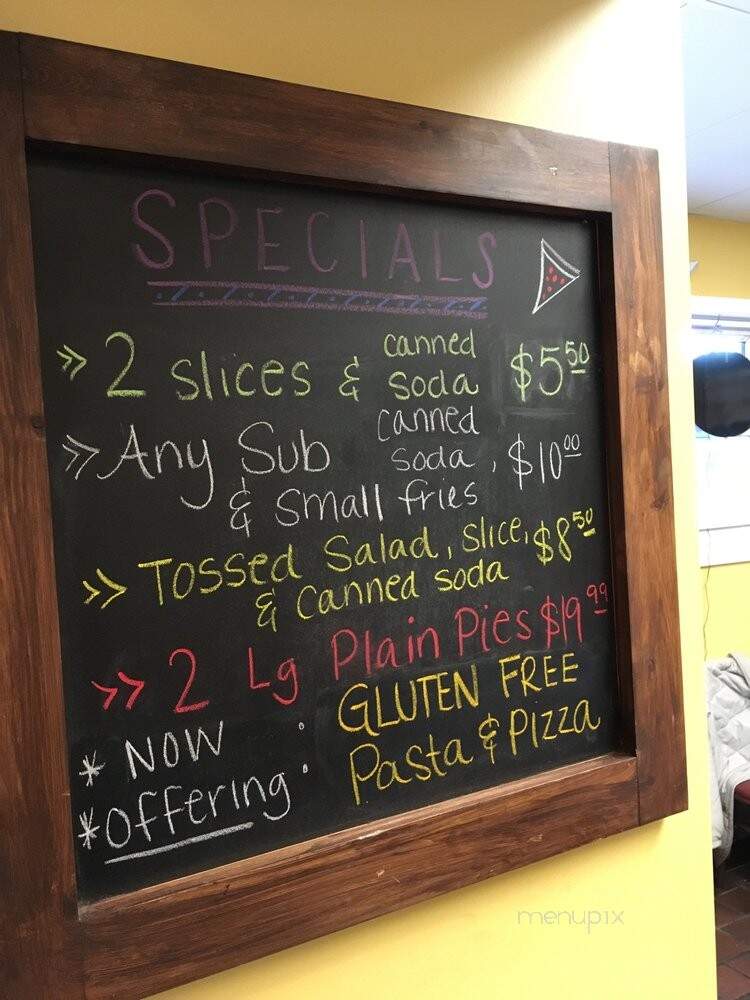 SPECIALS
» 2 slices & canned soda $5.50
» Any Sub canned soda,
& Small fries $10.00
» Tossed Salad, Slice,
& Canned soda $8.50
» 2 Lg Plain Pies $19.99
* NOW : GLUTEN FREE
* Offering : Pasta & Pizza
menupix